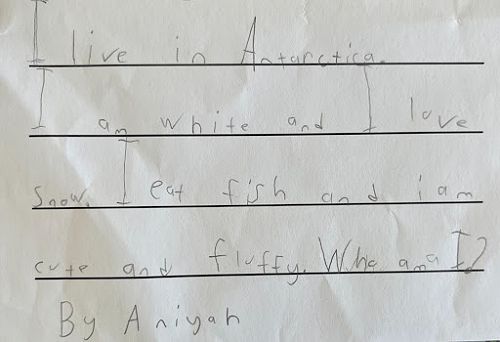 I live in Antarctica.
I am white and I love
snow. I eat fish and i am
cute and fluffy. Who ama I?
By Aniyah